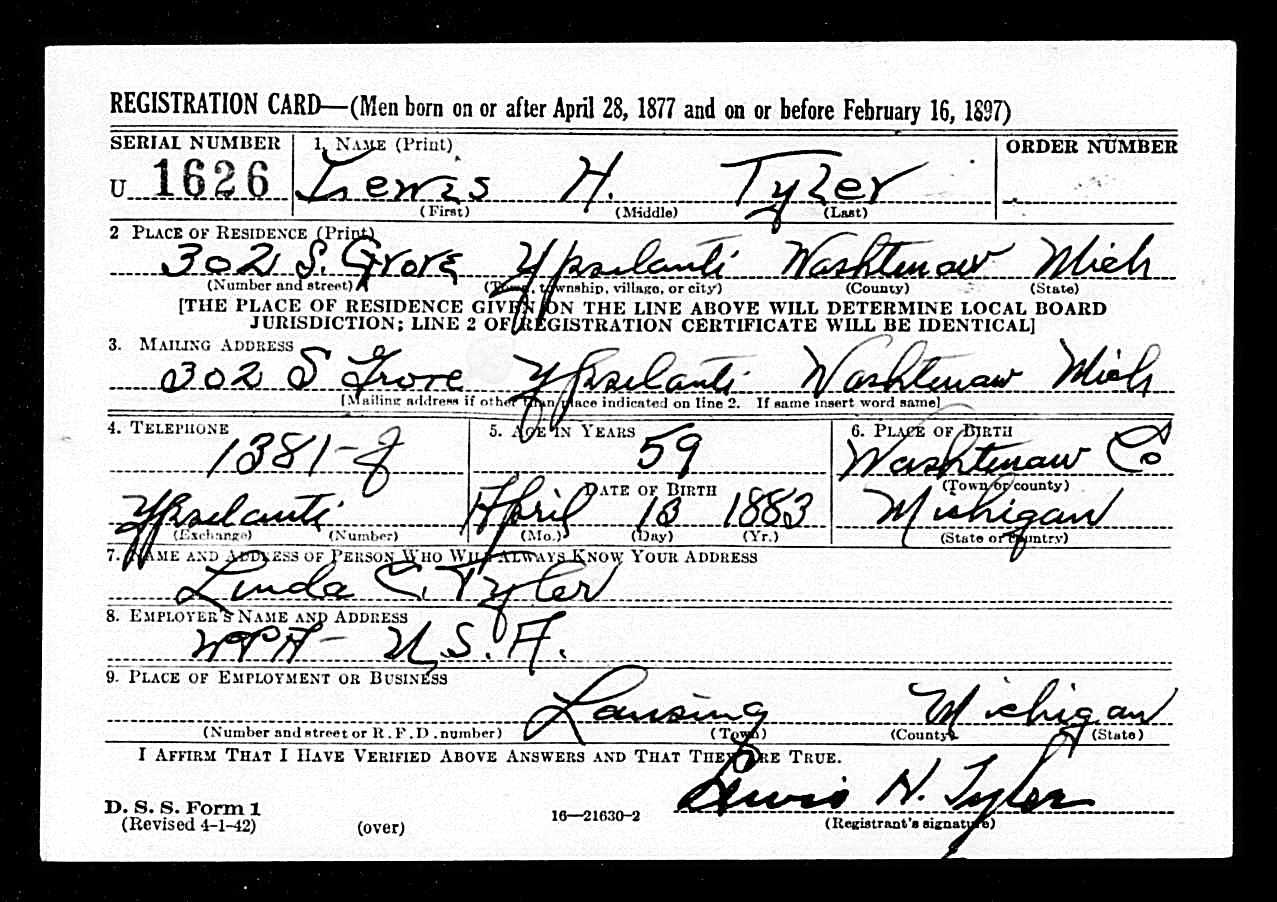 REGISTRATION CARD—(Men born on or after April 28, 1877 and on or before February 16, 1897)
SERIAL NUMBER 1. NAME (Print) ORDER NUMBER
U 1626 Lewis H. Tyler
(First) (Middle) (Last)
2 PLACE OF RESIDENCE (Print)
302 S. Grove Ypsilanti Washtenaw Mich
(Number and street) (Town, township, village, or city) (County) (State)
[THE PLACE OF RESIDENCE GIVEN ON THE LINE ABOVE WILL DETERMINE LOCAL BOARD
JURISDICTION; LINE 2 OF REGISTRATION CERTIFICATE WILL BE IDENTICAL]
3. MAILING ADDRESS
302 S Grove Ypsilanti Washtenaw Mich
[Mailing address if other than place indicated on line 2. If same insert word same]
4. TELEPHONE 5. AGE IN YEARS 6. PLACE OF BIRTH
1381-J 59 Washtenaw Co
DATE OF BIRTH (Town or county)
Ypsilanti April 13 1883 Michigan
(Exchange) (Number) (Mo.) (Day) (Yr.) (State or country)
7. NAME AND ADDRESS OF PERSON WHO WILL ALWAYS KNOW YOUR ADDRESS
Linda C. Tyler
8. EMPLOYER'S NAME AND ADDRESS
WPA - U.S.A.
9. PLACE OF EMPLOYMENT OR BUSINESS
Lansing Michigan
(Number and street or R. F. D. number) (Town) (County) (State)
I AFFIRM THAT I HAVE VERIFIED ABOVE ANSWERS AND THAT THEY ARE TRUE.
Lewis H. Tyler
D. S. S. Form 1
(Revised 4-1-42) (over) 16—21630-2 (Registrant's signature)